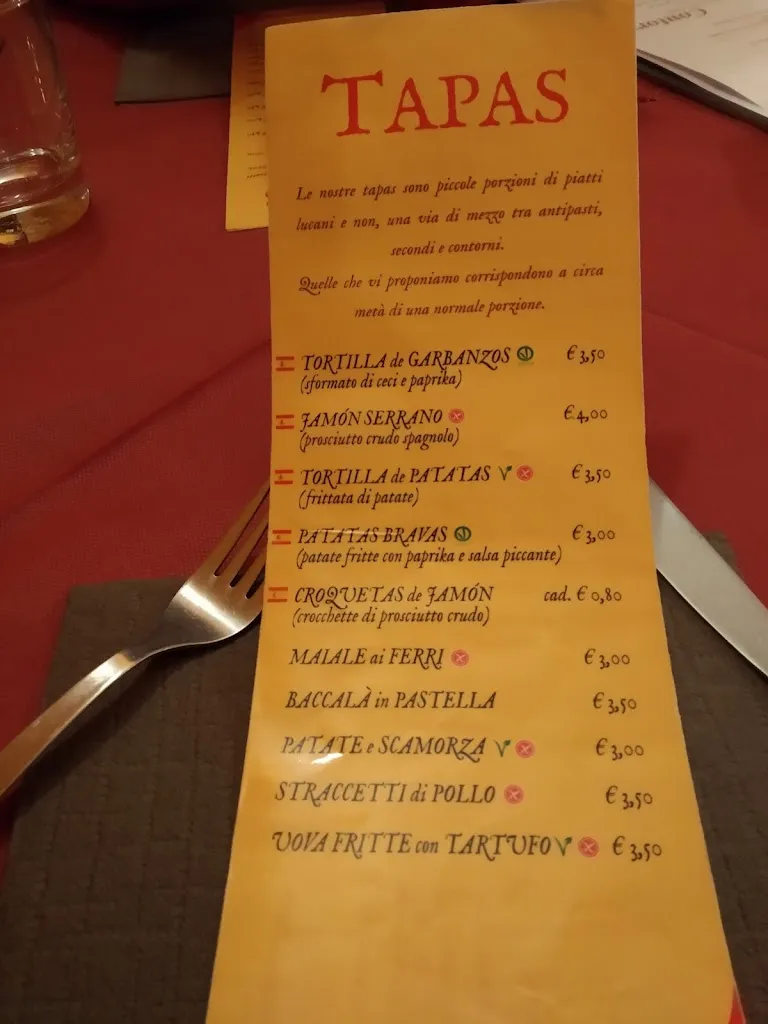 TAPAS
Le nostre tapas sono piccole porzioni di piatti
lucani e non, una via di mezzo tra antipasti,
secondi e contorni.
Quelle che vi proponiamo corrispondono a circa
metà di una normale porzione.
TORTILLA de GARBANZOS € 3,50
(sformato di ceci e paprika)
JAMÓN SERRANO € 4,00
(prosciutto crudo spagnolo)
TORTILLA de PATATAS € 3,50
(frittata di patate)
PATATAS BRAVAS € 3,00
(patate fritte con paprika e salsa piccante)
CROQUETAS de JAMÓN cad. € 0,80
(crocchette di prosciutto crudo)
MAIALE ai FERRI € 3,00
BACCALÀ in PASTELLA € 3,50
PATATE e SCAMORZA € 3,00
STRACCETTI di POLLO € 3,50
UOVA FRITTE con TARTUFO € 3,50